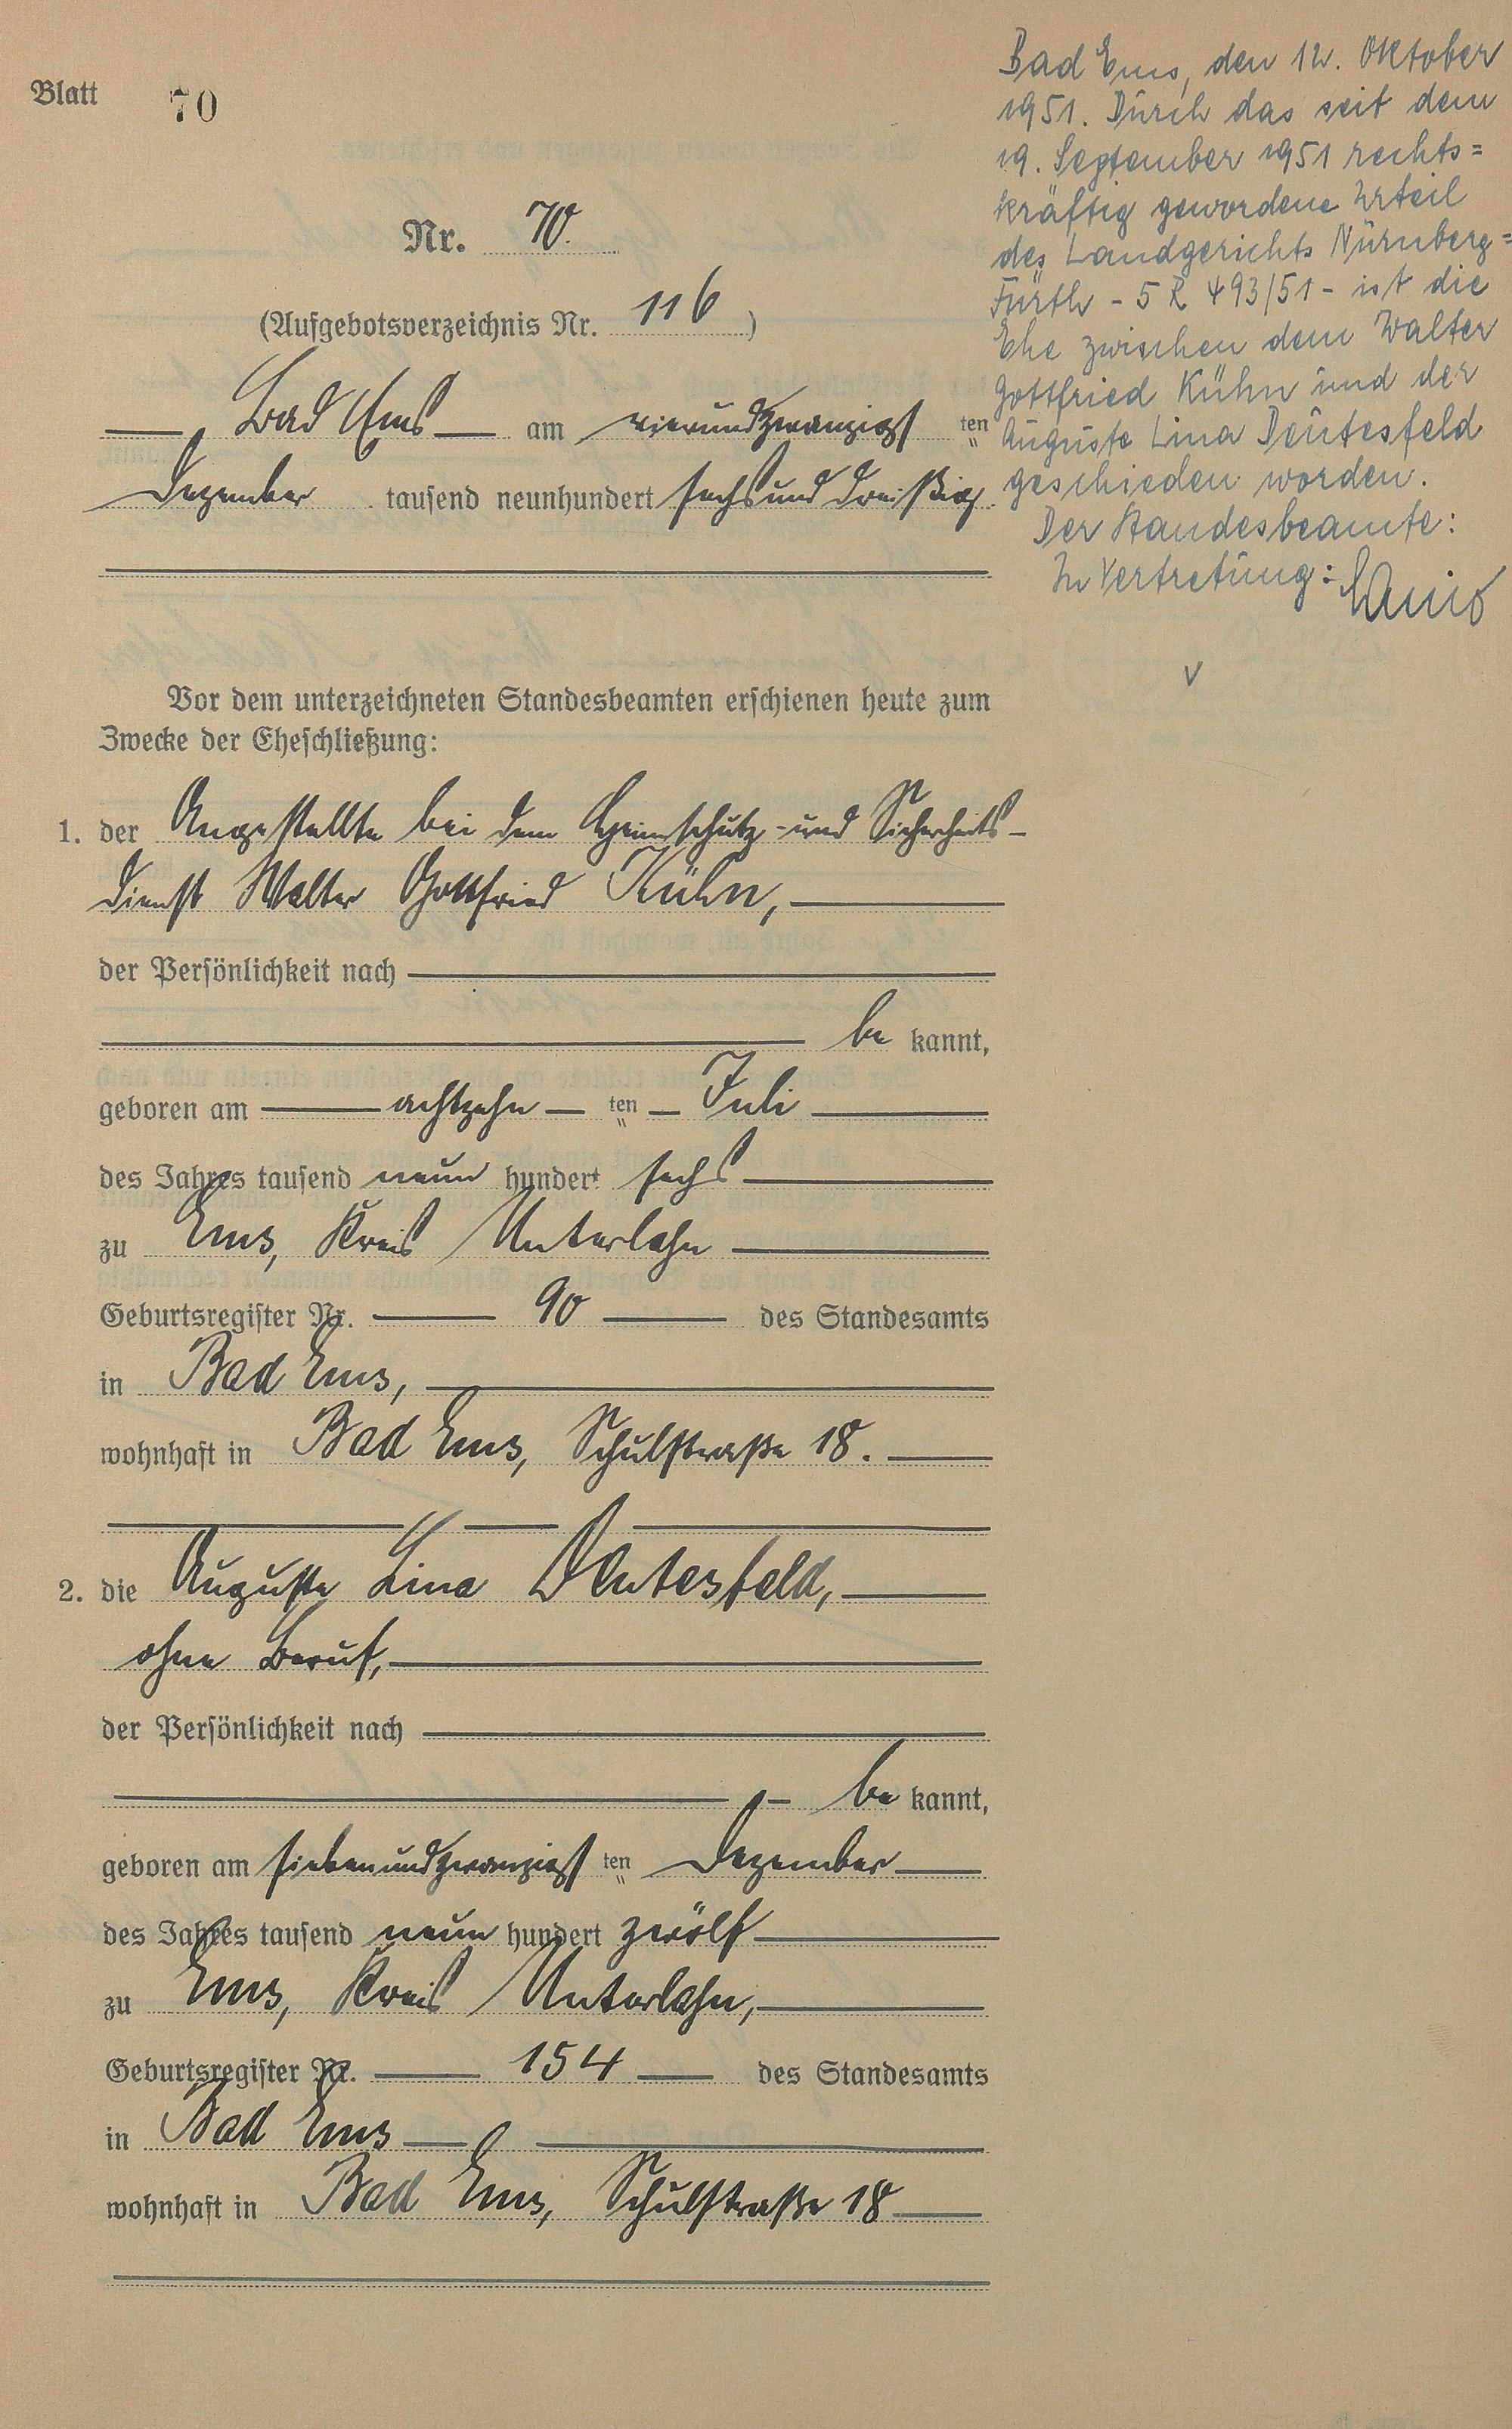 Blatt 70
Nr. 70.
(Aufgebotsverzeichnis Nr. 116)
Bad Ems am vierundzwanzigst ten
Dezember tausend neunhundert sechsunddreißig
Vor dem unterzeichneten Standesbeamten erschienen heute zum
Zwecke der Eheschließung:
1. der Angestellte bei dem Heimschutz- und Sicherheits-
dienst Walter Gottfried Kühn,
der Persönlichkeit nach
be kannt,
geboren am achtzehn ten Juli
des Jahres tausend neun hundert sechs
zu Ems, Kreis Unterlahn
Geburtsregister Nr. 90 des Standesamts
in Bad Ems,
wohnhaft in Bad Ems, Schulstraße 18.
2. die Auguste Lina Deutesfeld,
ohne Beruf,
der Persönlichkeit nach
be kannt,
geboren am siebenundzwanzigst ten Dezember
des Jahres tausend neun hundert zwölf
zu Ems, Kreis Unterlahn,
Geburtsregister Nr. 154 des Standesamts
in Bad Ems
wohnhaft in Bad Ems, Schulstraße 18
Bad Ems, den 12. Oktober
1951. Durch das seit dem
19. September 1951 rechts=
kräftig gewordene Urteil
des Landgerichts Nürnberg=
Fürth - 5 R 493/51 - ist die
Ehe zwischen dem Walter
Gottfried Kühn und der
Auguste Lina Deutesfeld
geschieden worden.
Der Standesbeamte:
In Vertretung: